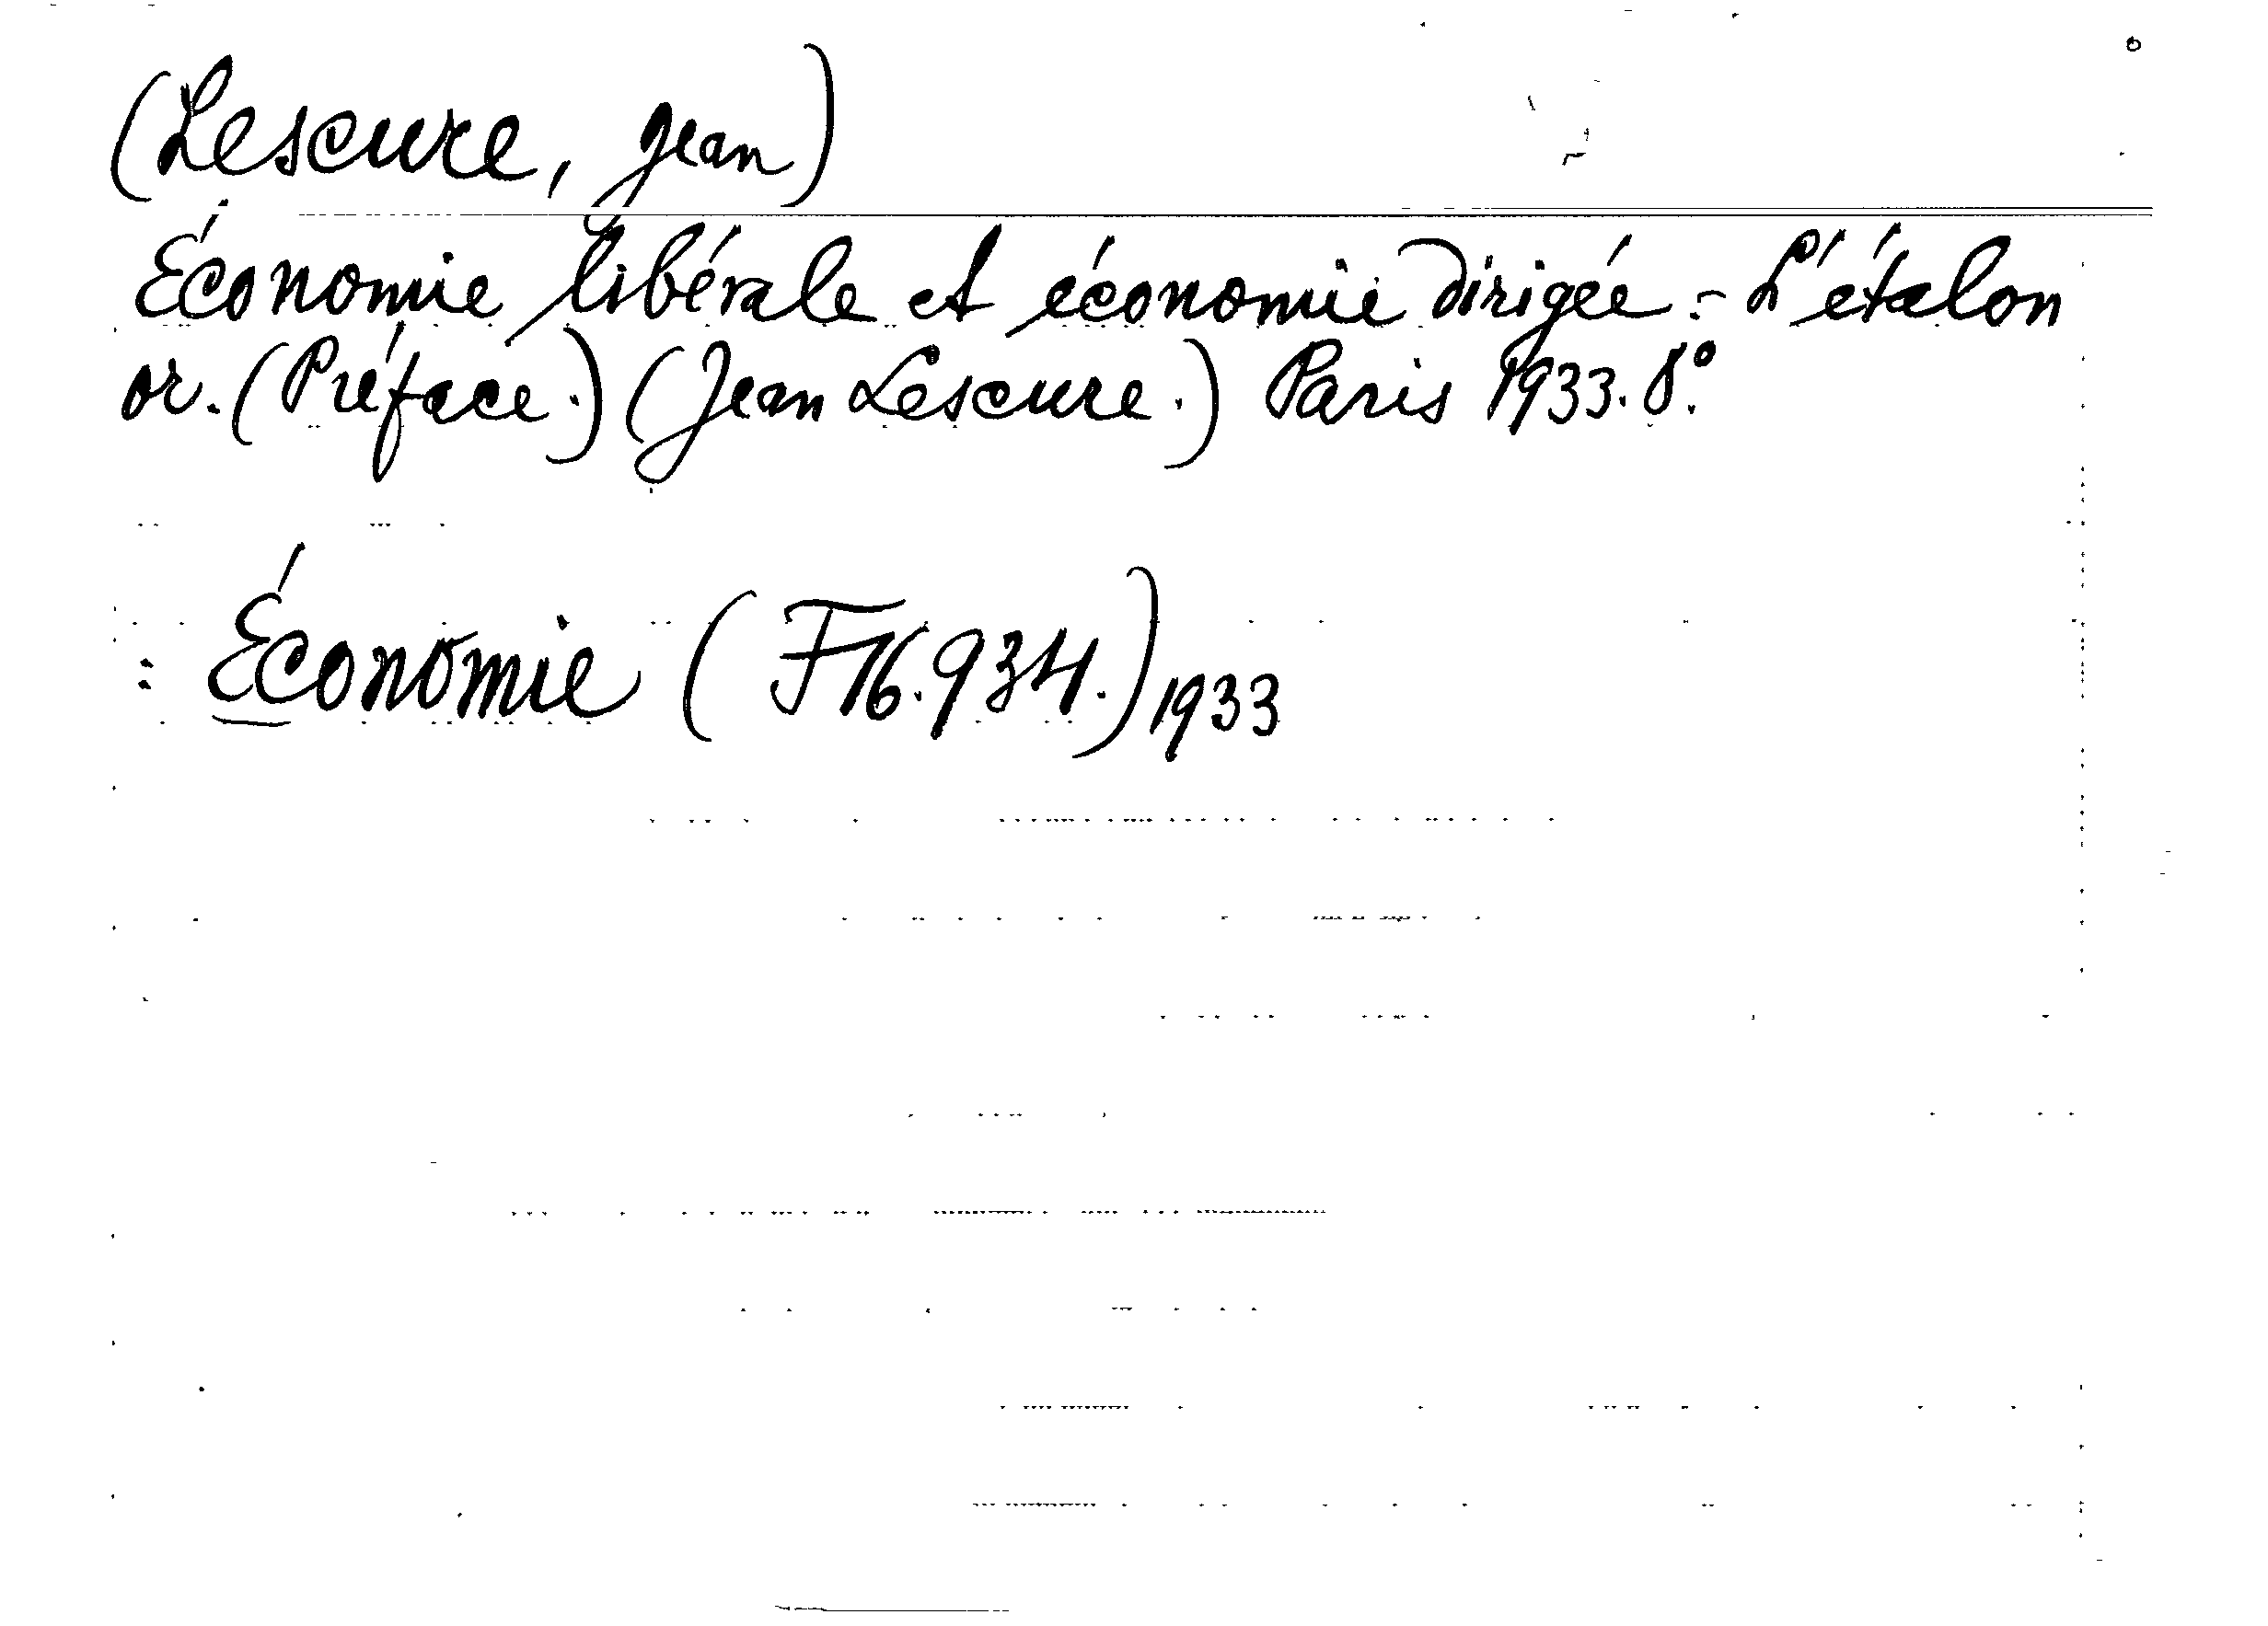 (Lescure, Jean)
Économie libérale et économie dirigée. - L'étalon
or. (Préface.) (Jean Lescure.) Paris 1933. 8°.
: Économie (F 16.934.) 1933